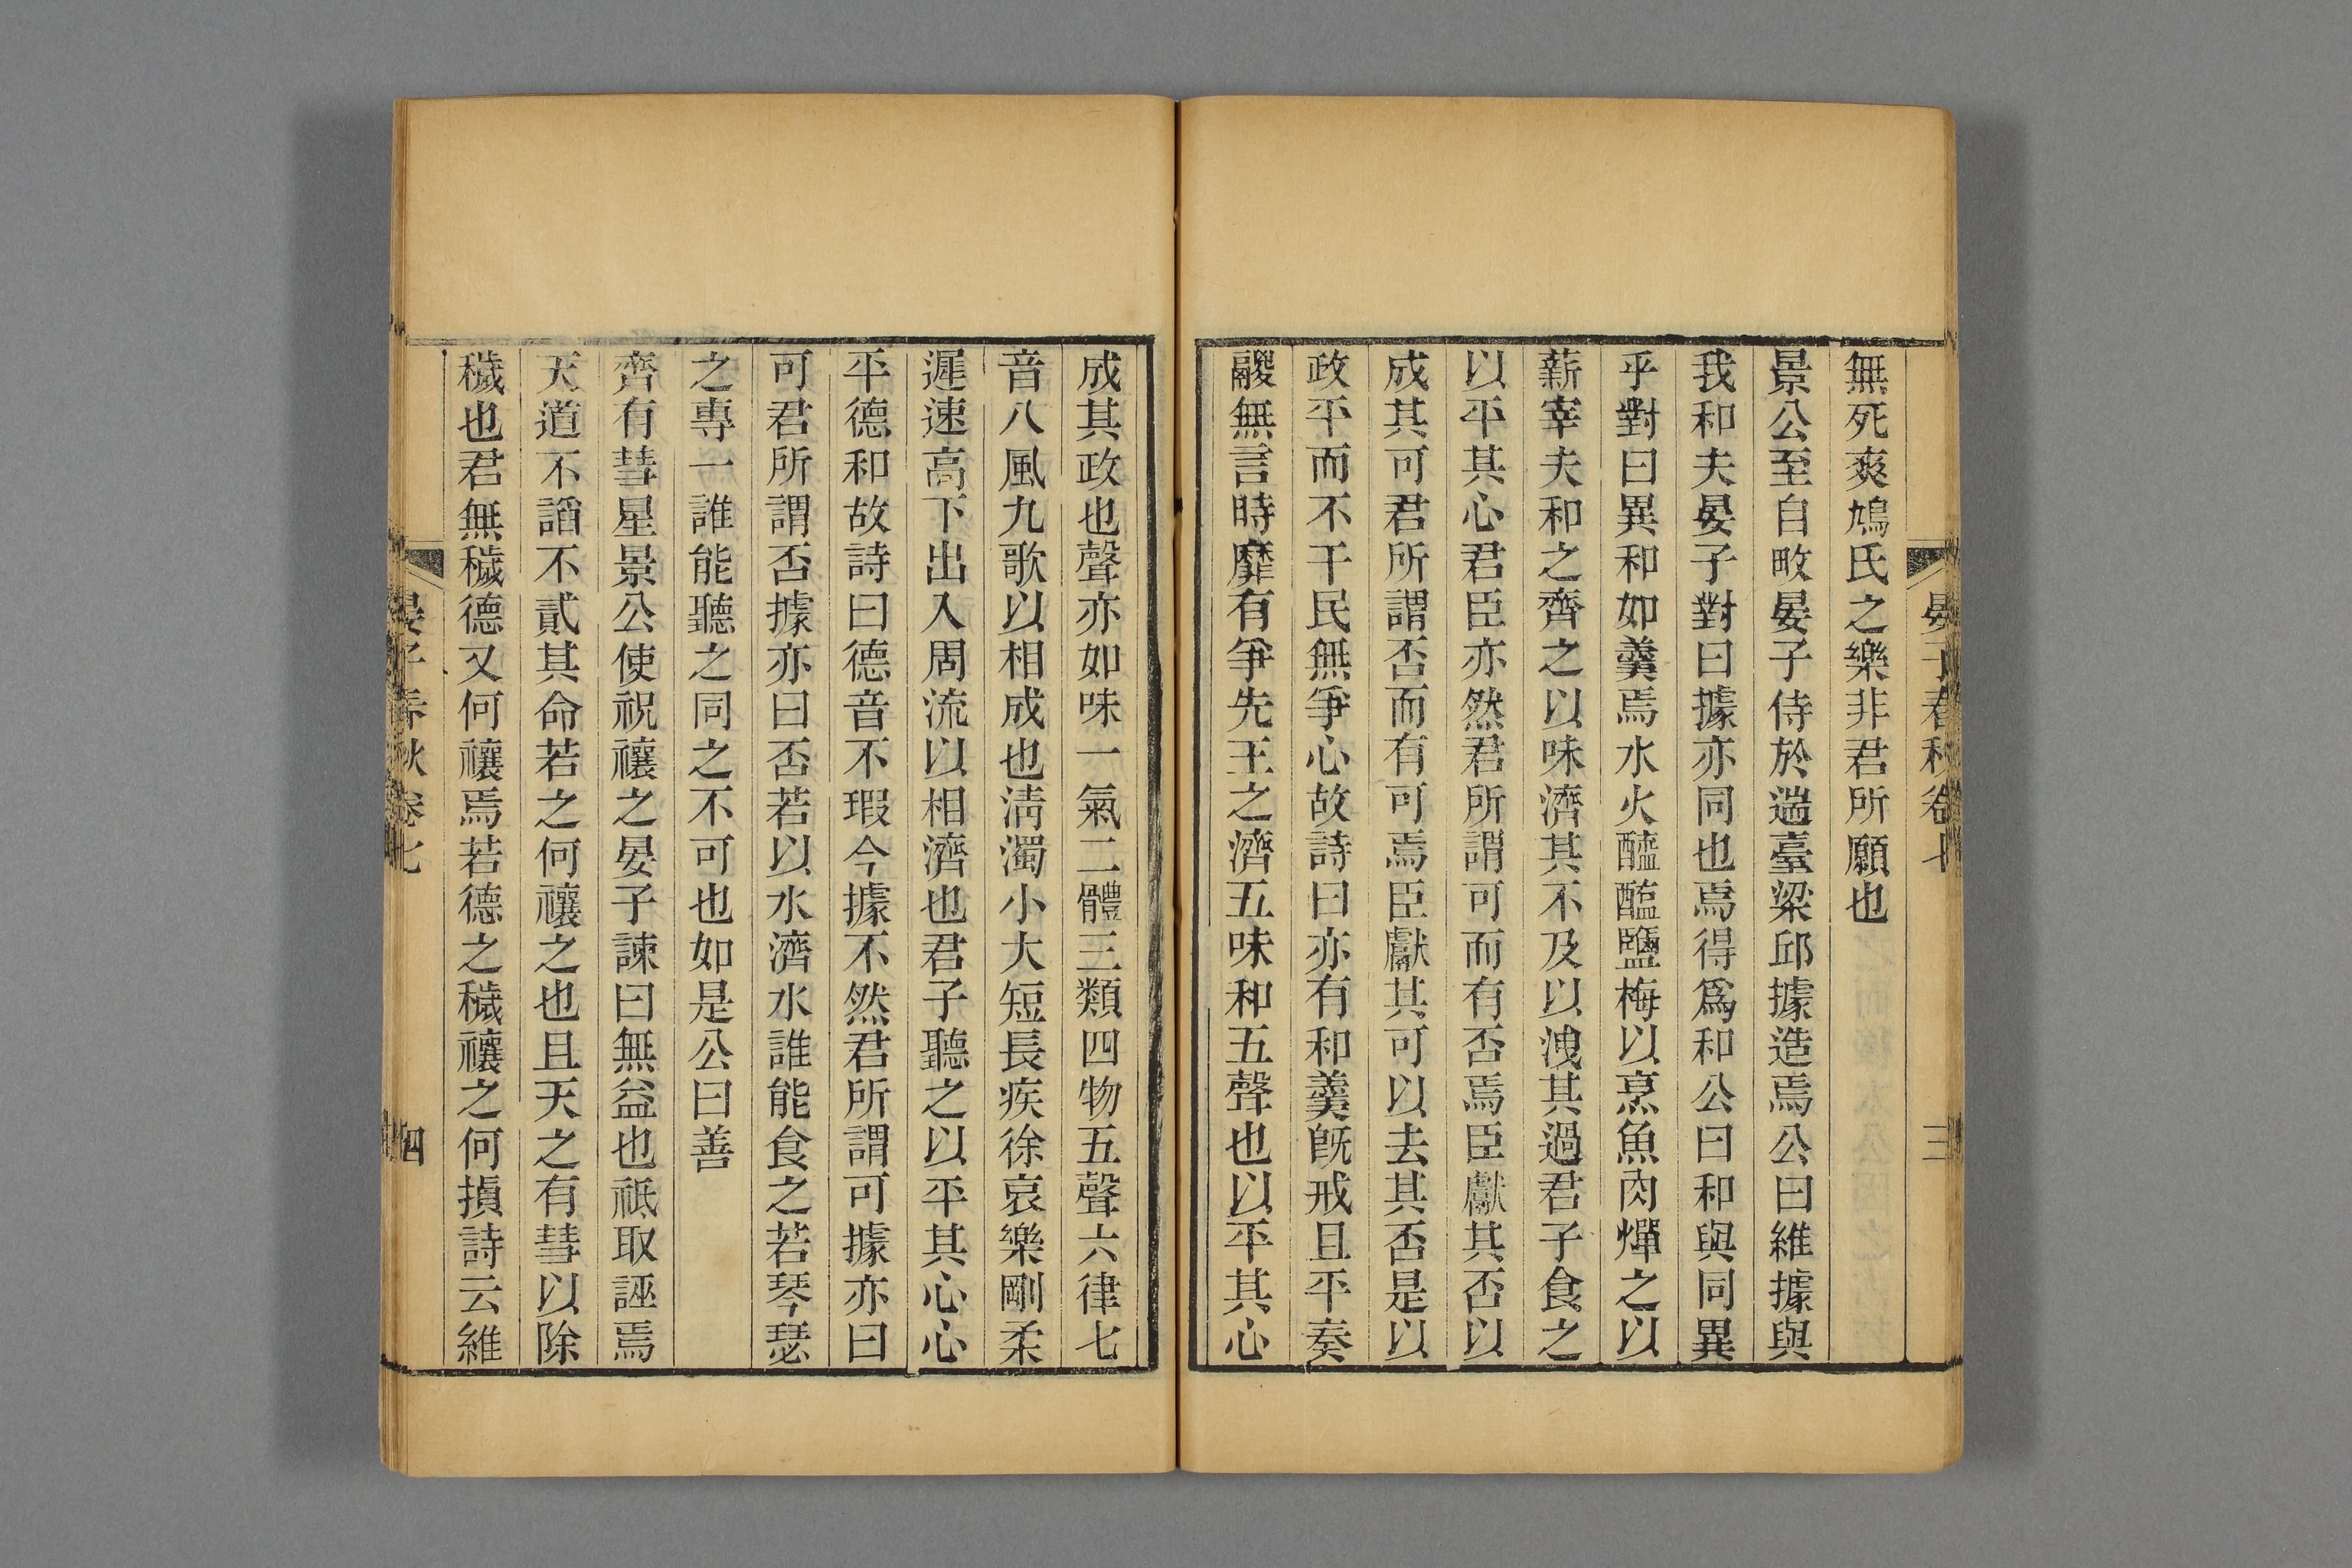 晏子春秋卷七
三
無死爽鳩氏之樂非君所願也
景公至自畋晏子侍於遄臺梁邱據造焉公曰維據與
我和夫晏子對曰據亦同也焉得爲和公曰和與同異
乎對曰異和如羹焉水火醯醢鹽梅以烹魚肉燀之以
薪宰夫和之齊之以味濟其不及以洩其過君子食之
以平其心君臣亦然君所謂可而有否焉臣獻其否以
成其可君所謂否而有可焉臣獻其可以去其否是以
政平而不干民無爭心故詩曰亦有和羹旣戒且平奏
鬷無言時靡有爭先王之濟五味和五聲也以平其心
成其政也聲亦如味一氣二體三類四物五聲六律七
音八風九歌以相成也淸濁小大短長疾徐哀樂剛柔
遲速高下出入周流以相濟也君子聽之以平其心心
平德和故詩曰德音不瑕今據不然君所謂可據亦曰
可君所謂否據亦曰否若以水濟水誰能食之若琴瑟
之專一誰能聽之同之不可也如是公曰善
齊有彗星景公使祝禳之晏子諫曰無益也祗取誣焉
天道不謟不貳其命若之何禳之也且天之有彗以除
穢也君無穢德又何禳焉若德之穢禳之何損詩云維
晏子春秋卷七
四